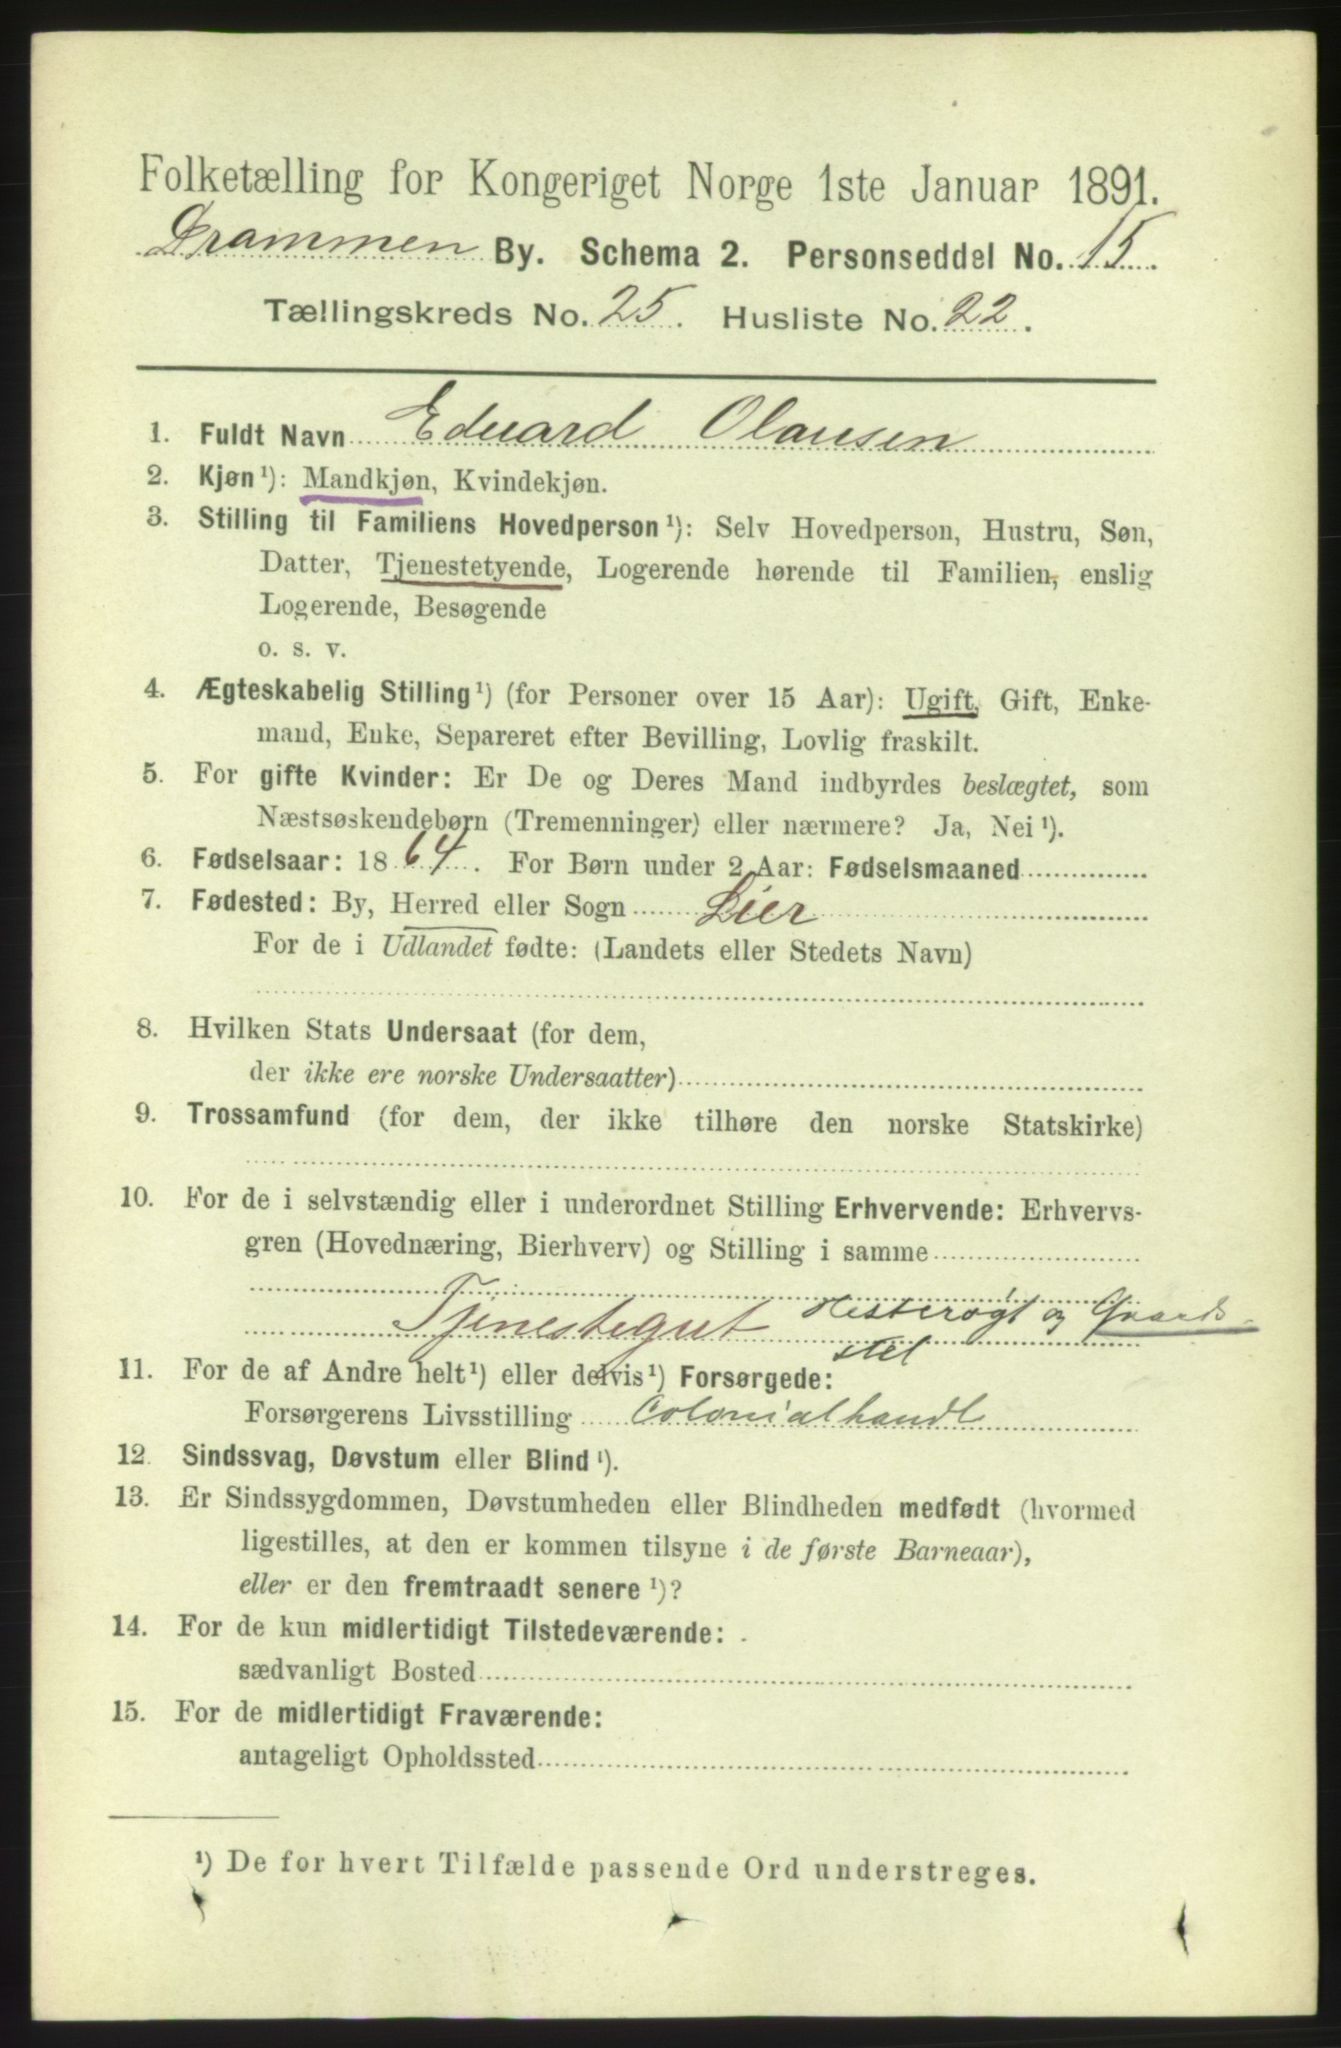 Folketælling for Kongeriget Norge 1ste Januar 1891.
Drammen By. Schema 2. Personseddel No. 15.
Tællingskreds No. 25. Husliste No. 22.
1. Fuldt Navn Eduard Olausen
2. Kjøn ¹): Mandkjøn, Kvindekjøn.
3. Stilling til Familiens Hovedperson ¹): Selv Hovedperson, Hustru, Søn,
Datter, Tjenestetyende, Logerende hørende til Familien, enslig
Logerende, Besøgende
o. s. v.
4. Ægteskabelig Stilling ¹) (for Personer over 15 Aar): Ugift, Gift, Enke-
mand, Enke, Separeret efter Bevilling, Lovlig fraskilt.
5. For gifte Kvinder: Er De og Deres Mand indbyrdes beslægtet, som
Næstsøskendebørn (Tremenninger) eller nærmere? Ja, Nei ¹).
6. Fødselsaar: 1864. For Børn under 2 Aar: Fødselsmaaned
7. Fødested: By, Herred eller Sogn Lier
For de i Udlandet fødte: (Landets eller Stedets Navn)
8. Hvilken Stats Undersaat (for dem,
der ikke ere norske Undersaatter)
9. Trossamfund (for dem, der ikke tilhøre den norske Statskirke)
10. For de i selvstændig eller i underordnet Stilling Erhvervende: Erhvervs-
gren (Hovednæring, Bierhverv) og Stilling i samme
Tjenestegut Hesterøgt og Gaards-
stel
11. For de af Andre helt ¹) eller delvis ¹) Forsørgede:
Forsørgerens Livsstilling Colonialhandl
12. Sindssvag, Døvstum eller Blind ¹).
13. Er Sindssygdommen, Døvstumheden eller Blindheden medfødt (hvormed
ligestilles, at den er kommen tilsyne i de første Barneaar),
eller er den fremtraadt senere ¹)?
14. For de kun midlertidigt Tilstedeværende:
sædvanligt Bosted
15. For de midlertidigt Fraværende:
antageligt Opholdssted
¹) De for hvert Tilfælde passende Ord understreges.